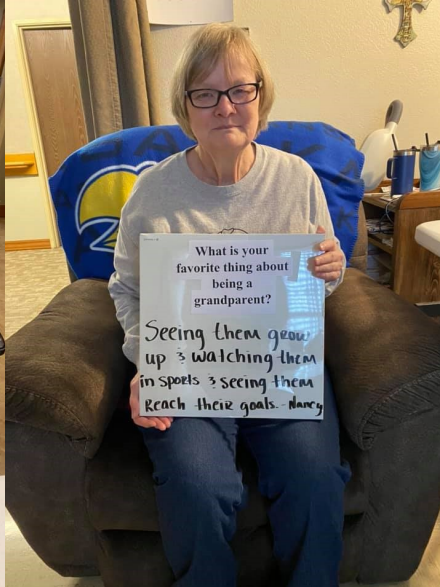 What is your
favorite thing about
being a
grandparent?
Seeing them grow
up & watching them
in sports & seeing them
Reach their goals. - Nancy